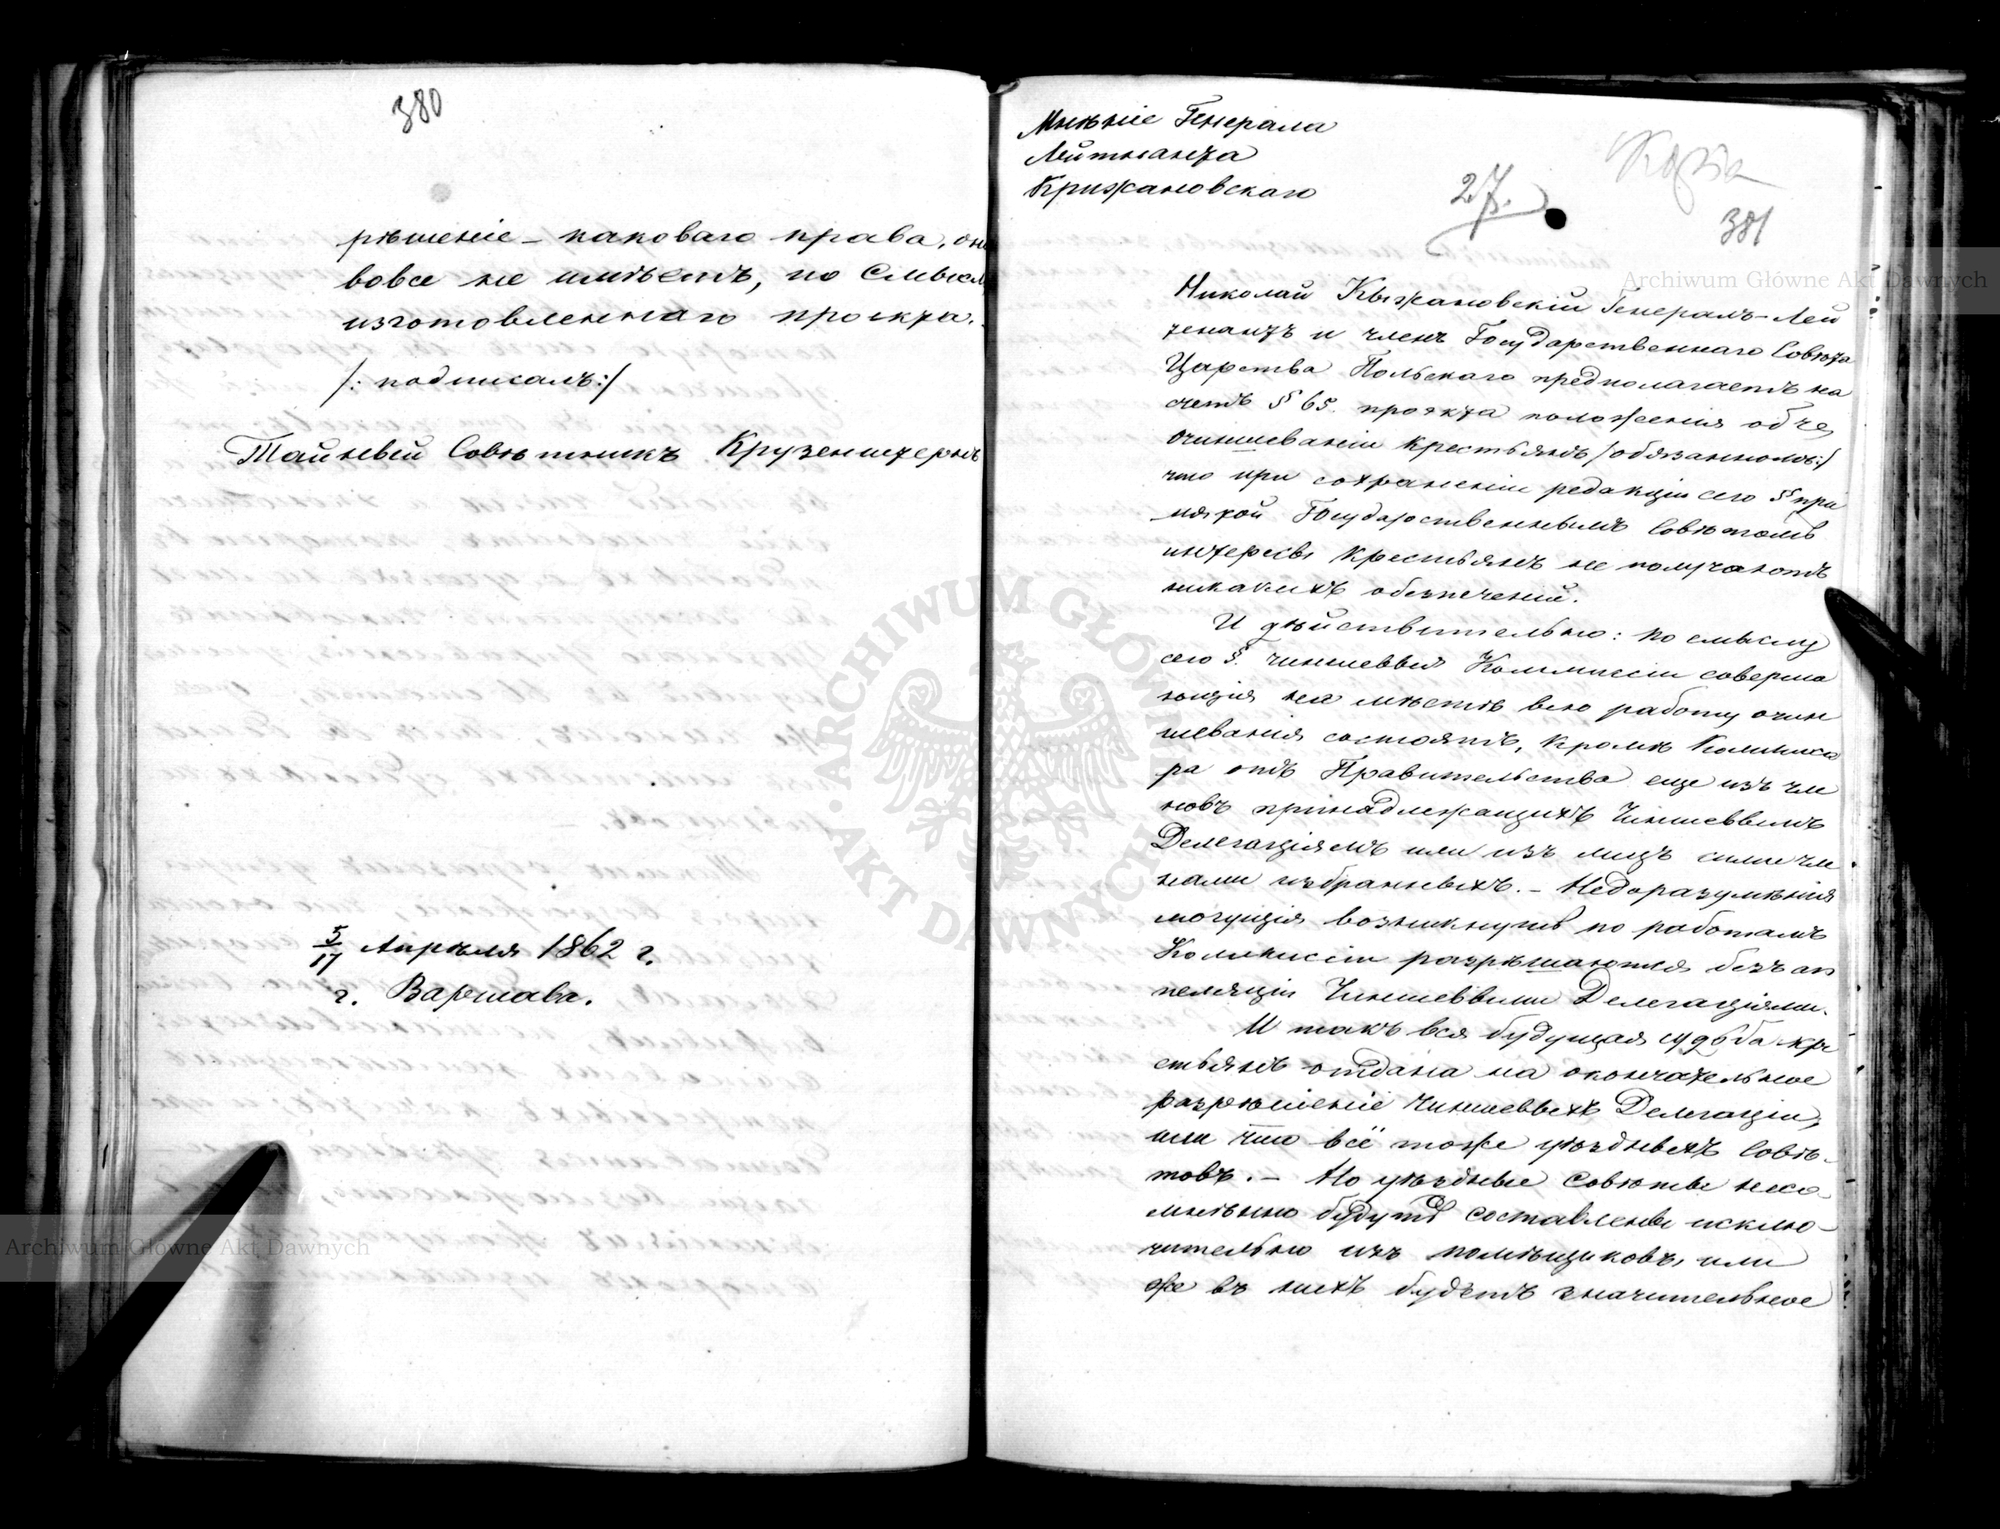 380
рѣшеніе – каковаго права, они
вовсе не имѣетъ, по смыслу
изготовленнаго проекта.
/: подписалъ:/
Тайный Совѣтникъ Крузенштернъ
5/17 Апрѣля 1862 г.
г. Варшава.
Мнѣніе Генерала
Лейтнанта
Крижановскаго
27.
Kopia
381
Николай Крыжановскій Генералъ-Лей
тенантъ и членъ Государственнаго Совѣта
Царства Польскаго предполагаетъ на
счетъ § 65. проэкта положенія объ
очиншеваніи крестьянъ /обязанномъ:/
что при сохраненіи редакціи сего § при
нятой Государственнымъ Совѣтомъ
интересы крестьянъ не получаютъ
никакихъ обезпеченій.
И дѣйствительно: по смыслу
сего §. чиншевыя Коммиссіи соверша
ющія на мѣстѣ всю работу очин
шеванія состоятъ, кромѣ Коммиса
ра отъ Правительства еще изъ чле
новъ принадлежащихъ Чиншевымъ
Делегаціямъ или изъ лицъ сими чле
нами избранныхъ. – Недоразумѣнія
могущія возникнуть по работамъ
Коммисіи разрѣшаются безъ ап
пеляціи Чиншевыми Делегаціями.
И такъ вся будущая судьба кре
стьянъ отдана на окончательное
разрѣшеніе Чиншевыхъ Делегаціи,
или что всё тоже уѣздныхъ Совѣ-
товъ. – Но уѣздные Совѣты несо-
мнѣнно будутъ составлены исклю-
чительно изъ помѣщиковъ, или
же въ нихъ будетъ значительное
Archiwum Główne Akt Dawnych
Archiwum Główne Akt Dawnych
ARCHIWUM GŁÓWNE AKT DAWNYCH